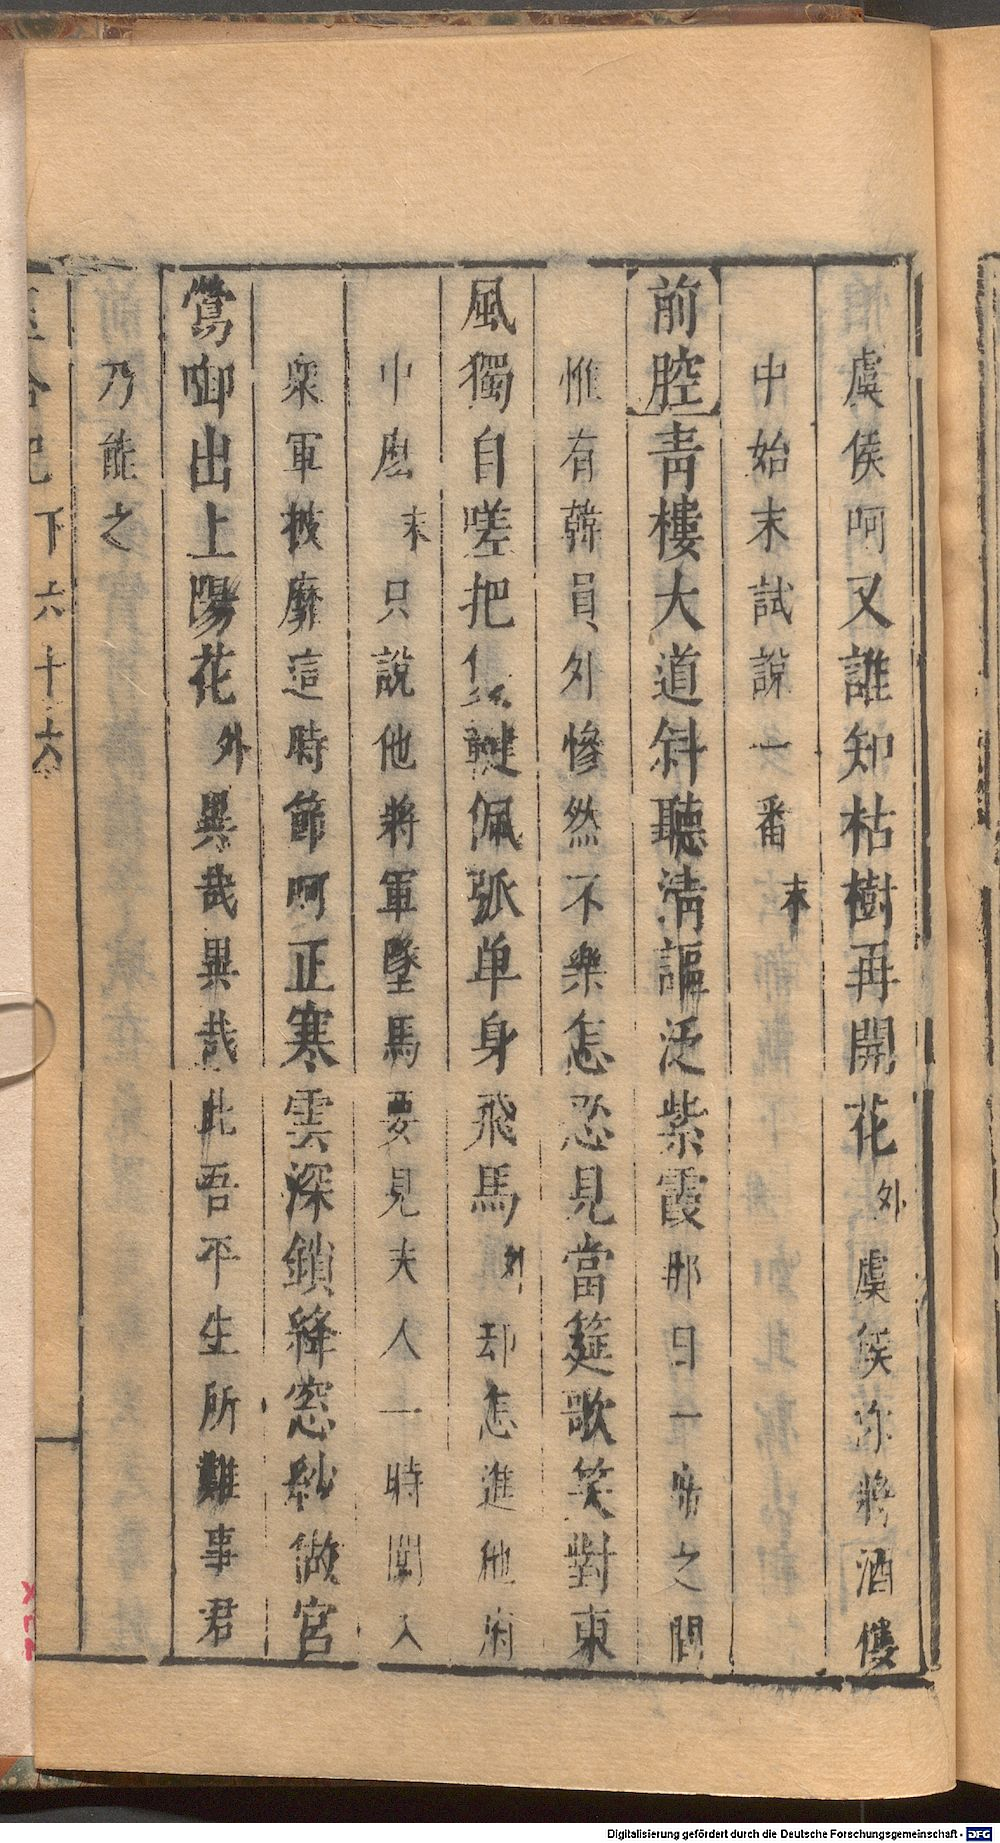 虞侯呵又誰知枯樹再開花外虞侯你將酒樓
中始末試說一番末
前腔青樓大道斜聽淸謳泛紫霞那日一席之間
惟有韓員外慘然不樂怎恐見當筵歌笑對東
風獨自嗟把佩弧单身飛馬外却怎進他府
中麽末只說他將軍墜馬要見夫人一時闖入
衆軍披靡這時節呵正寒雲深鎖絳窓紗做宫
鶯啣出上陽花外異哉異哉此吾平生所難事君
乃能之
玉合記下六十六
Digitalisierung gefördert durch die Deutsche Forschungsgemeinschaft - DFG